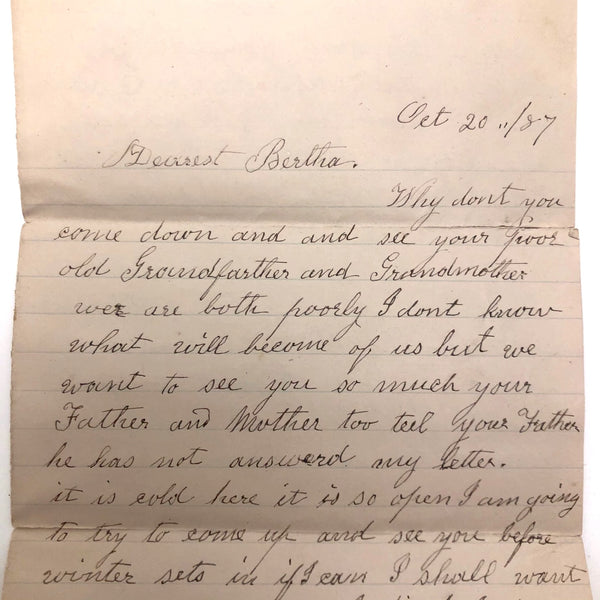 Oct 20 "/87
Dearest Bertha.
Why dont you
come down and and see your poor
old Grondfarther and Grandmother
wee are both poorly I dont know
what will become of us but we
want to see you so much your
Father and Mother too tel your Father
he has not answerd my letter.
it is cold here it is so open I am going
to try to come up and see you before
winter sets in if I can I shall want